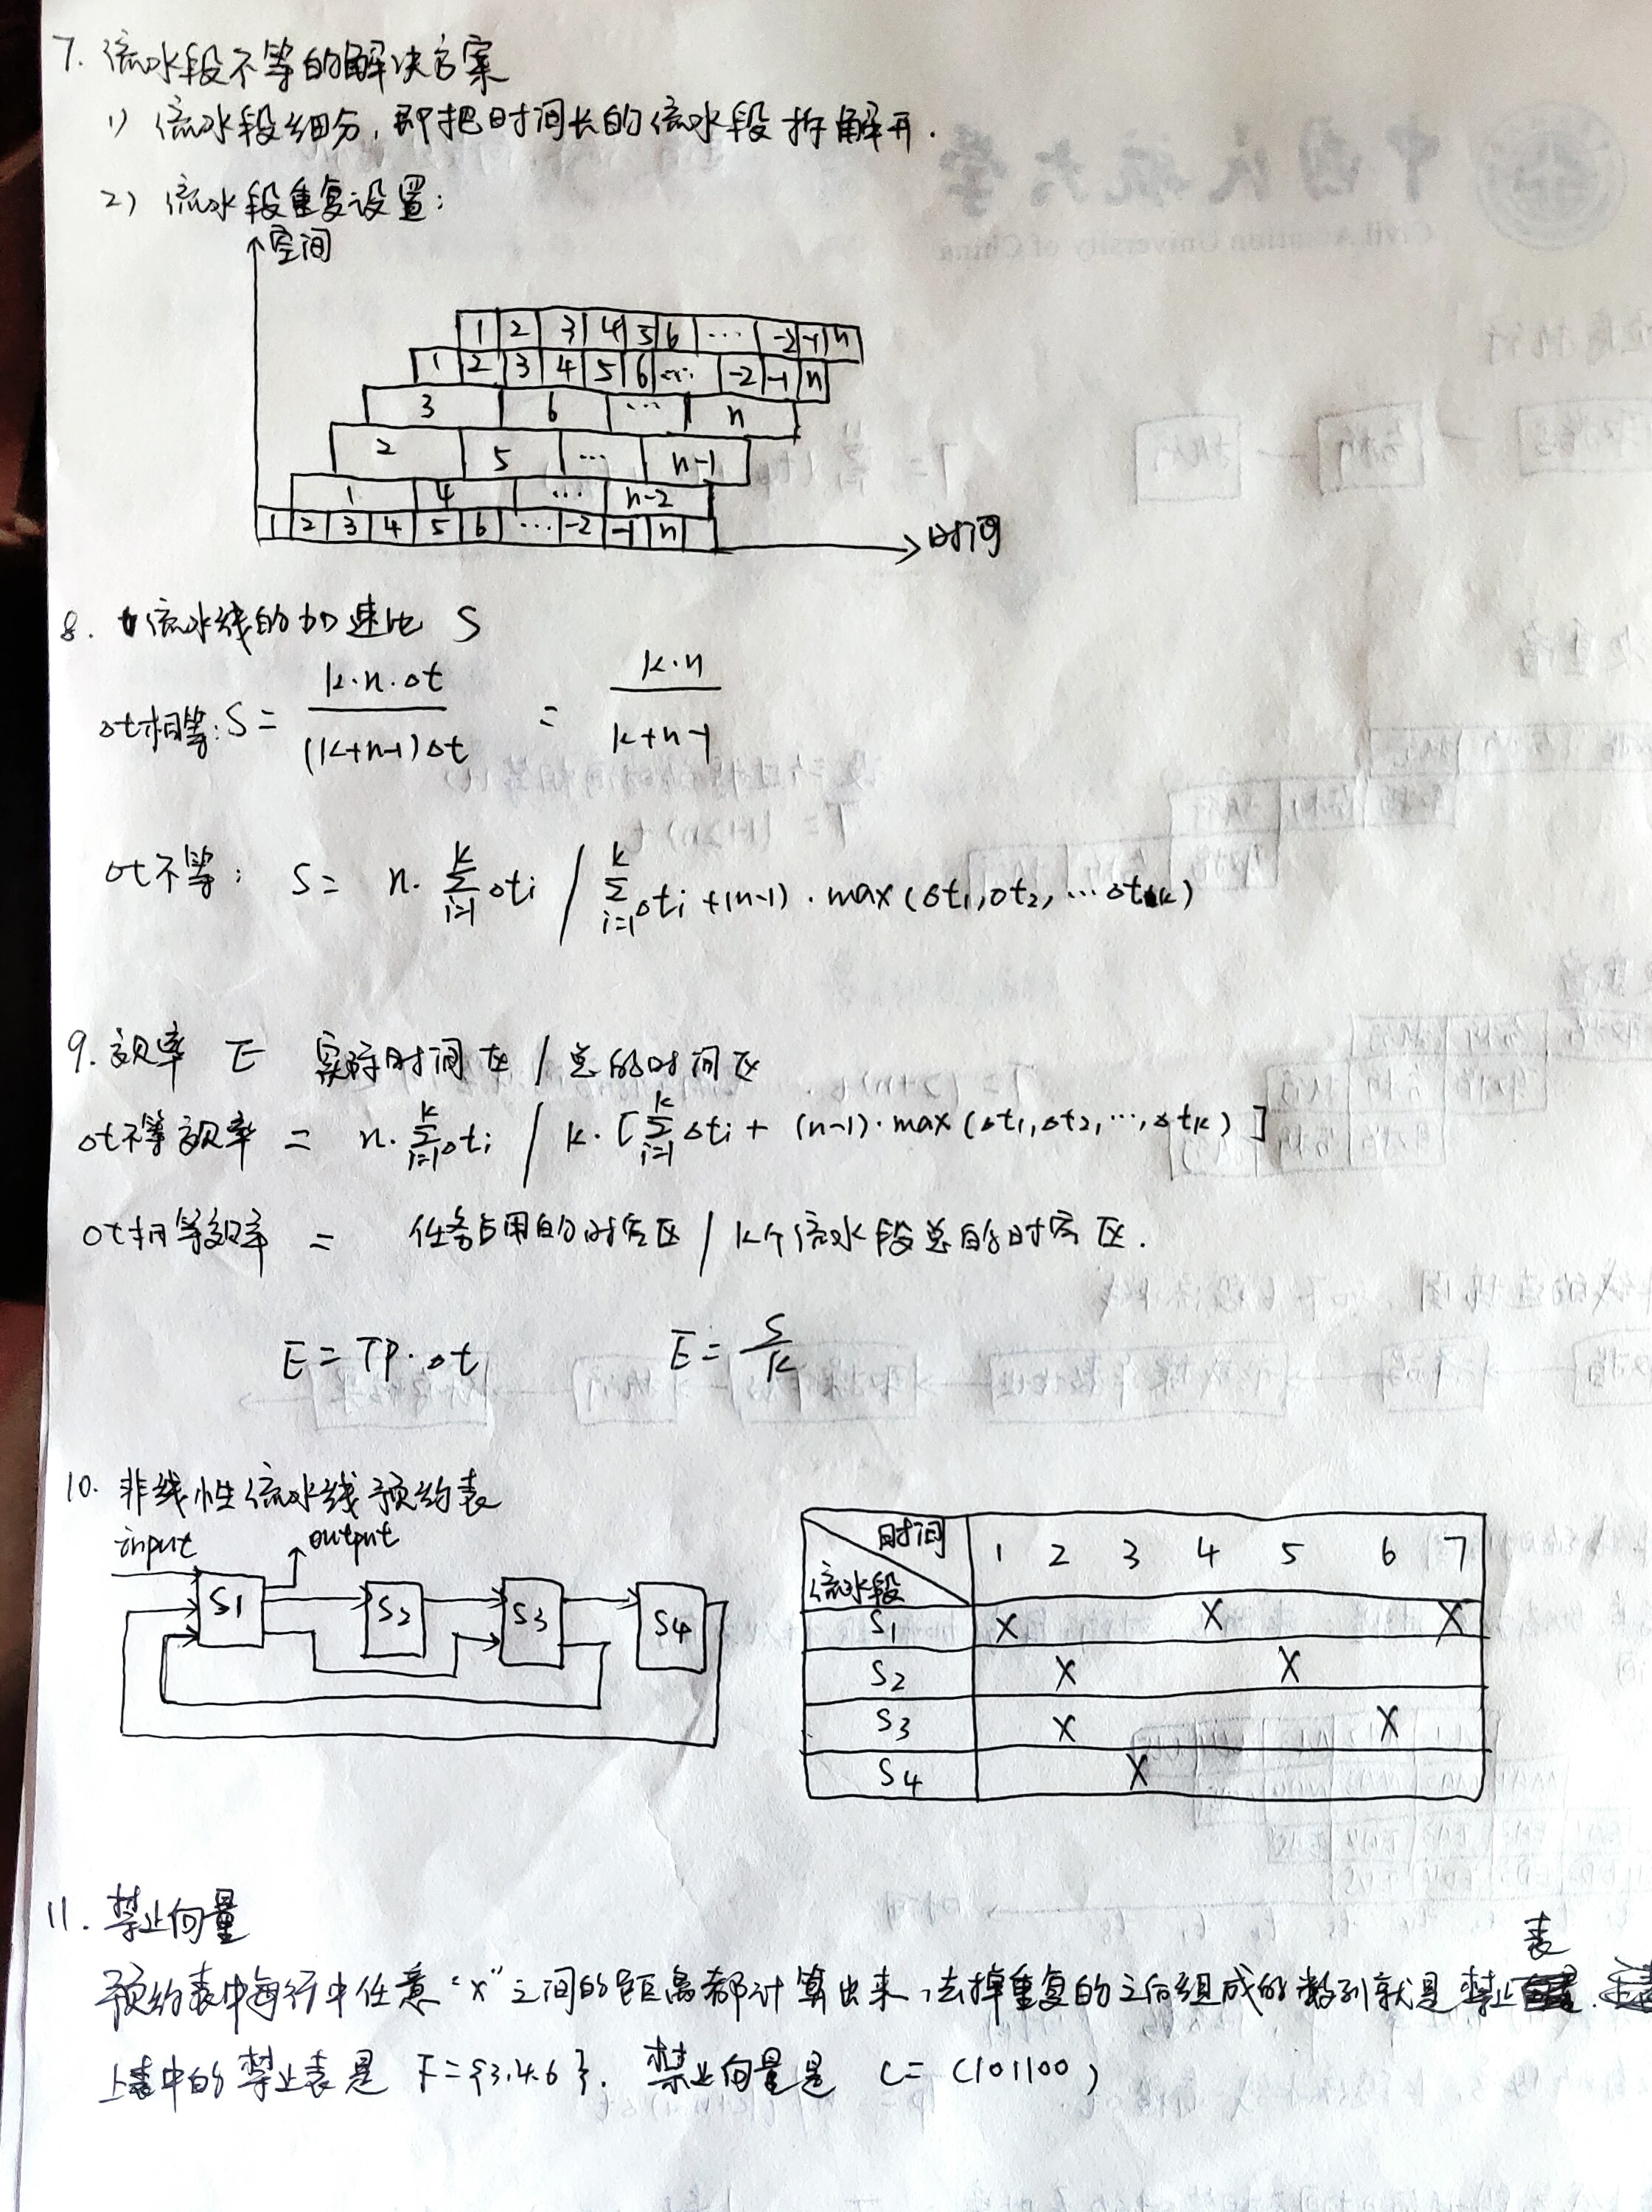 7. 流水段不等的解决方案
1) 流水段细分，即把时间长的流水段拆解开.
2) 流水段重复设置：
空间
1 2 3 4 5 6 ... -2 -1 n
1 2 3 4 5 6 ... -2 -1 n
3 6 ... n
2 5 ... n-1
1 4 ... n-2
1 2 3 4 5 6 ... -2 -1 n
时间
8. 流水线的加速比 S
Δt相等: S = k·n·Δt / (k+n-1)Δt = k·n / k+n-1
Δt不等: S = n· ∑(i=1→k) Δti / ∑(i=1→k) Δti + (n-1)·max(Δt1,Δt2,…Δtk)
9. 效率 E 实际时间区 / 总的时间区
Δt不等效率 = n· ∑(i=1→k) Δti / k·[∑(i=1→k) Δti + (n-1)·max(Δt1,Δt2,…,Δtk)]
Δt相等效率 = 任务占用的时空区 / k个流水段总的时空区.
E = TP·Δt E = S/k
10. 非线性流水线预约表
input output
S1 S2 S3 S4
时间 1 2 3 4 5 6 7
流水段
S1 X X X
S2 X X
S3 X X
S4 X
11. 禁止向量
预约表中每行中任意“X”之间的距离都计算出来，去掉重复的之后组成的数列就是禁止表.
上表中的禁止表是 F={3.4.6}. 禁止向量是 C=(101100)